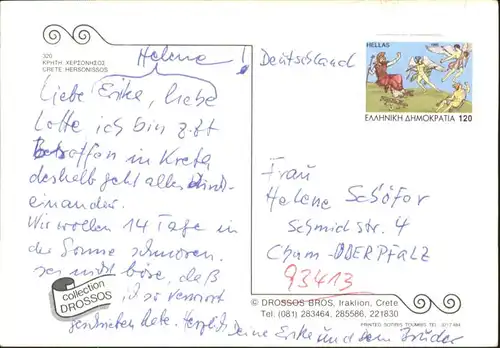 320
ΚΡΗΤΗ ΧΕΡΣΟΝΗΣΟΣ
CRETE HERSONISSOS
Helene !
Liebe Erike, liebe
Lotte ich bin z. Zt
in Kreta
deshalb geht alles
einander.
Wir wollen 14 Tage in
der Sonne schmoren.
sei nicht böse, daß
ich so verworrt
geschrieben habe. Herzlichst Deine Erike und dein Bruder
collection
DROSSOS
Deutschland
HELLAS
ΕΛΛΗΝΙΚΗ ΔΗΜΟΚΡΑΤΙΑ 120
Frau
Helene Schöfor
Schmidstr. 4
Cham-OBERPFALZ
93413
© DROSSOS BROS, Iraklion, Crete
Tel: (081) 283464, 285586, 221830
PRINTED SOTIRIS TOUMBIS TEL.